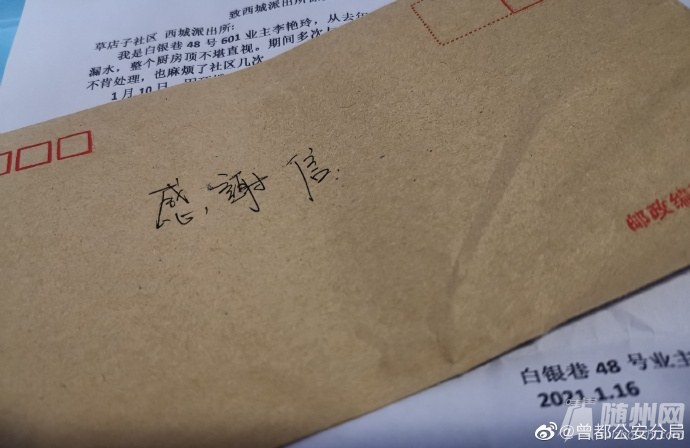 致西城派出所
草店子社区 西城派出所：
我是白银巷 48 号 601 业主李艳玲，从去年
漏水，整个厨房顶不堪直视。期间多次
不肯处理，也麻烦了社区几次
1 月 10 日
感谢信
邮政编
白银巷 48 号业主
2021.1.16
随州网
@曾都公安分局